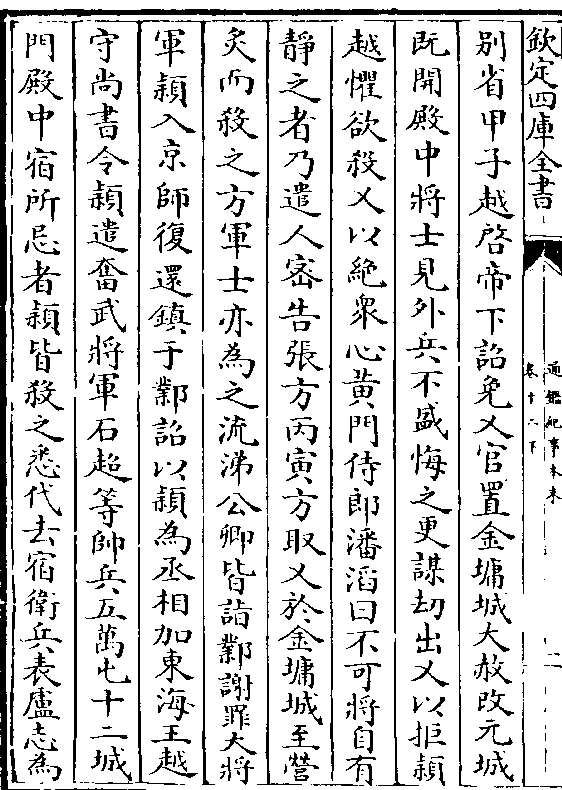 欽定四庫全書
通鑑紀事本末
卷十二下
二
別省甲子越啓帝下詔免乂官置金墉城大赦改元城
既開殿中將士見外兵不盛悔之更謀刼出乂以拒穎
越懼欲殺乂以絶衆心黄門侍郎潘滔曰不可將自有
靜之者乃遣人宻告張方丙寅方取乂於金墉城至營
炙而殺之方軍士亦為之流涕公卿皆詣鄴謝罪大將
軍穎入京師復還鎮于鄴詔以穎為丞相加東海王越
守尚書令穎遣奮武將軍石超等帥兵五萬屯十二城
門殿中宿所忌者穎皆殺之悉代去宿衛兵表盧志為